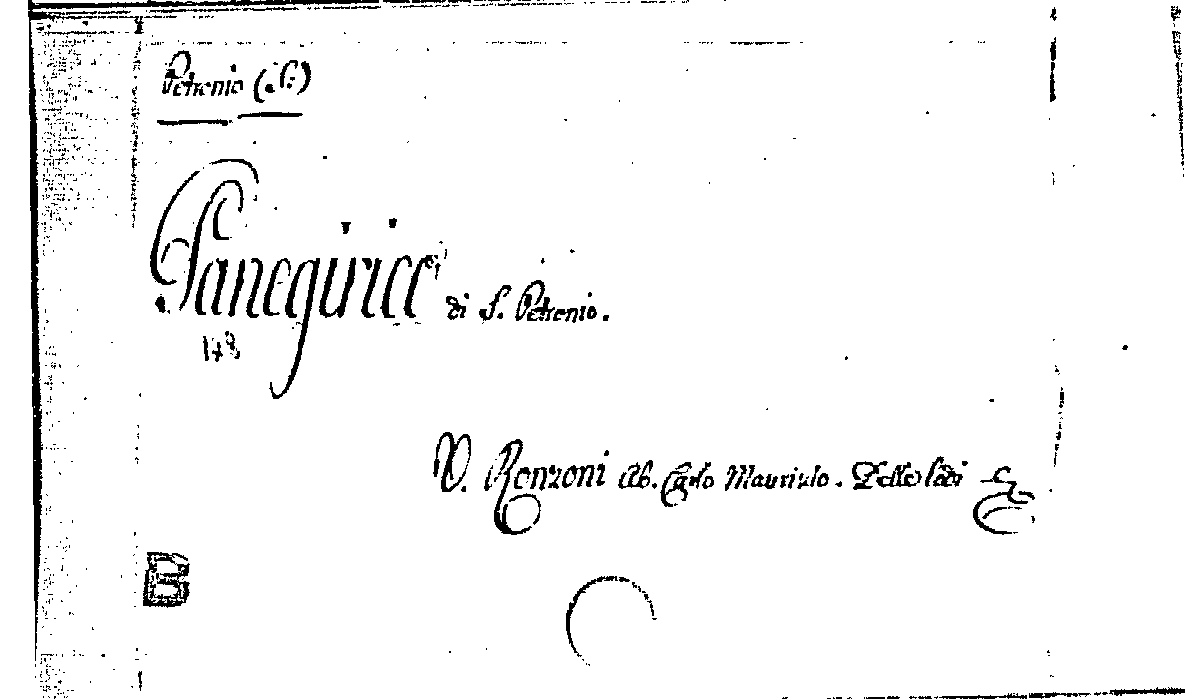 Petronio (S.)
Panegirici di S. Petronio.
178
V. Ronzoni Ab. Carlo Maurizio. Delle lodi &c
B